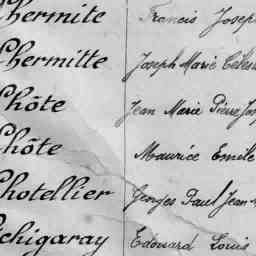 Lhermite Francis Josep
Lhermitte Joseph Marie Céles
Lhôte Jean Marie Pierre Jos
Lhôte Maurice Emile
Lhotellier Georges Paul Jean
Lchigaray Edouard Louis